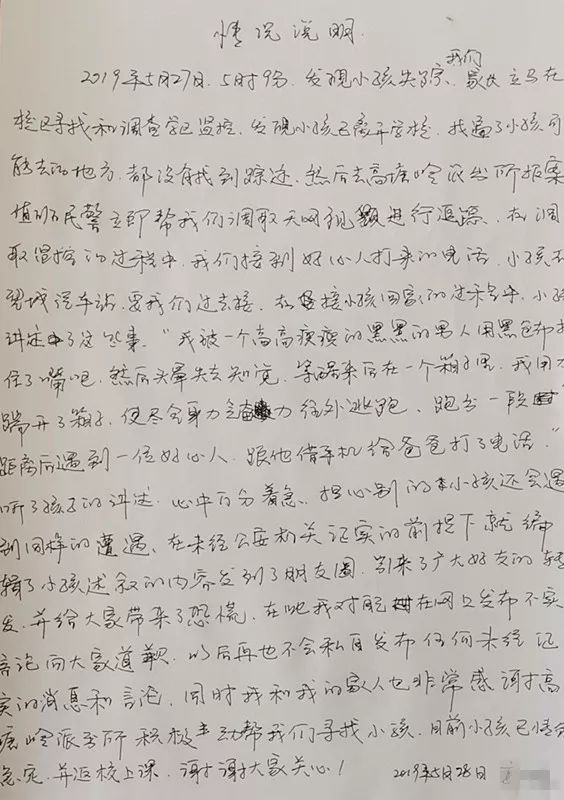 情况说明
2019年5月27日.5时9分.发现小孩失踪.我们家长立马在
校区寻找和调查学区监控.发现小孩已离开学校.找遍了小孩可
能去的地方.都没有找到踪迹.然后去高塘岭派出所报案
值班民警立即帮我们调取天网视频进行追踪.在调
取监控的过程中.我们接到好心人打来的电话.小孩在
望城汽车站.要我们过去接.在接小孩回家的过程中.小孩
讲述了这些事."我被一个高高瘦瘦的黑黑的男人用黑色布
住了嘴吧.然后头晕失去知觉.等醒来后在一个箱子里.我用力
踢开了箱子.使尽全身力气奋力往外逃跑.跑出一段
距离后遇到一位好心人.跟他借手机给爸爸打了电话."
听了孩子的讲述.心中百分着急.担心别的小孩还会遇
到同样的遭遇.在未经公安机关证实的前提下就编
辑了小孩述叙的内容发到了朋友圈.引来了广大好友的转
发.并给大家带来了恐慌.在此我对在网上发布不实
言论向大家道歉.以后再也不会私自发布任何未经证
实的消息和言论.同时我和我的家人也非常感谢高
塘岭派出所积极主动帮我们寻找小孩.目前小孩已情绪
稳定.并返校上课.谢谢大家关心！
2019年5月28日